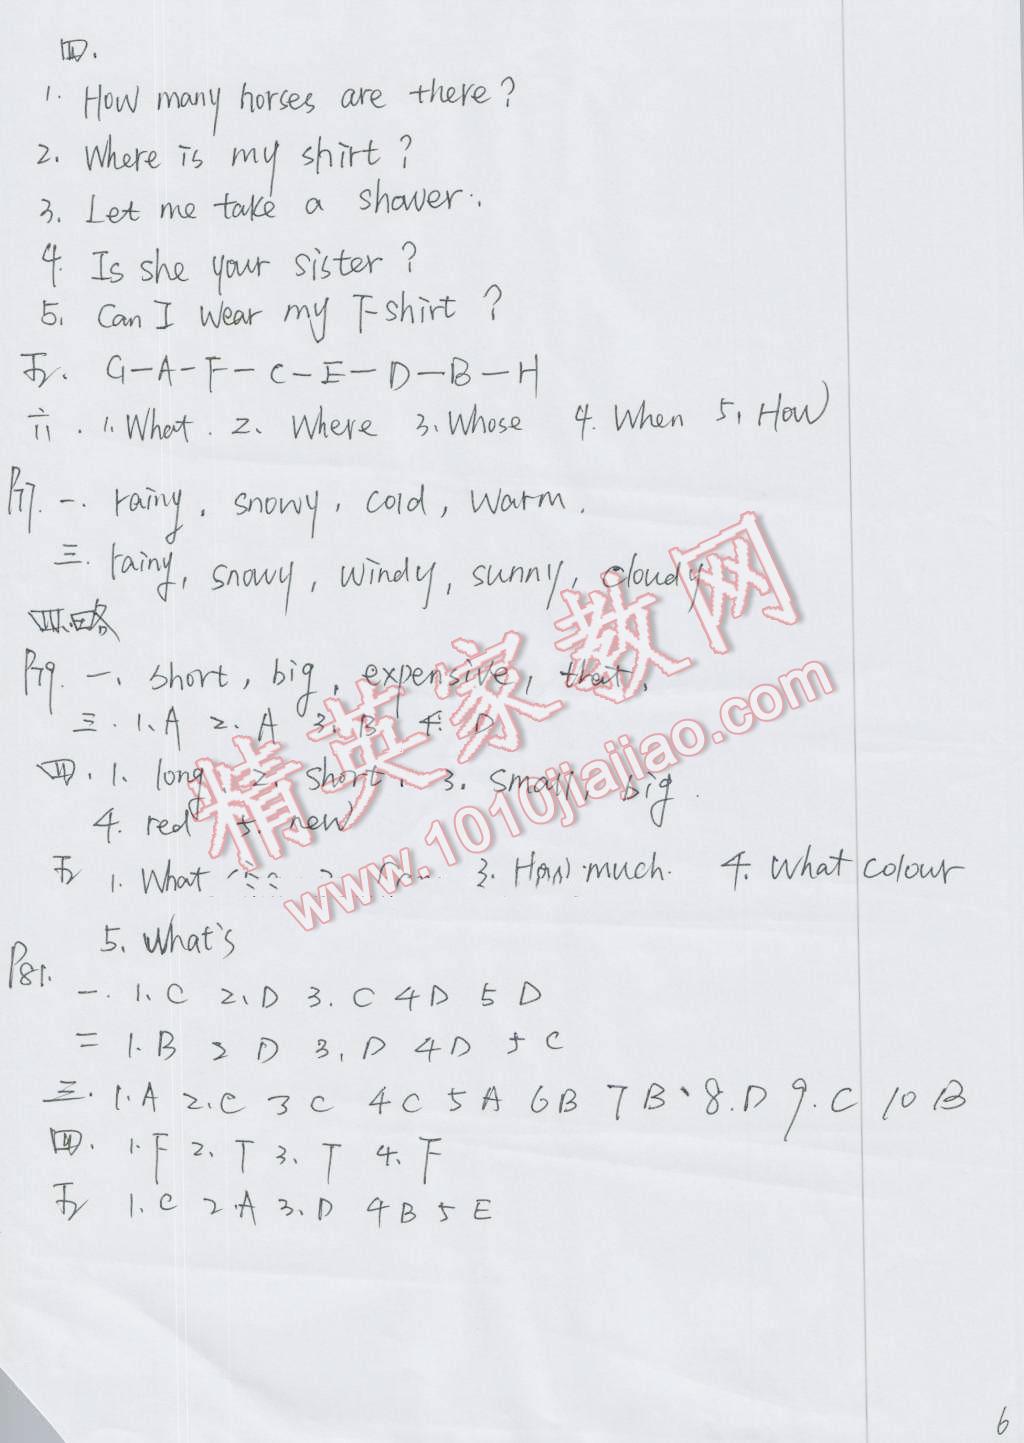 四.
1. How many horses are there?
2. Where is my shirt?
3. Let me take a shower.
4. Is she your sister?
5. Can I wear my T-shirt?
五. G-A-F-C-E-D-B-H
六. 1. What. 2. Where 3. Whose 4. When 5. How
P77. 一. rainy, snowy, cold, warm.
三. rainy, snowy, windy, sunny, cloudy
四.略
P79. 一. short, big, expensive, that.
三. 1. A 2. A 3. B 4. D
四. 1. long 2. short. 3. small, big.
4. red 5. new
五 1. What 3. How much. 4. What colour
5. What's
P81.
一. 1. C 2. D 3. C 4 D 5 D
二 1. B 2 D 3. D 4 D 5 C
三. 1. A 2. C 3 C 4 C 5 A 6 B 7 B 8. D 9. C 10 B
四. 1. F 2. T 3. T 4. F
五 1. C 2. A 3. D 4 B 5 E
精英家教网
www.1010jiajiao.com
6